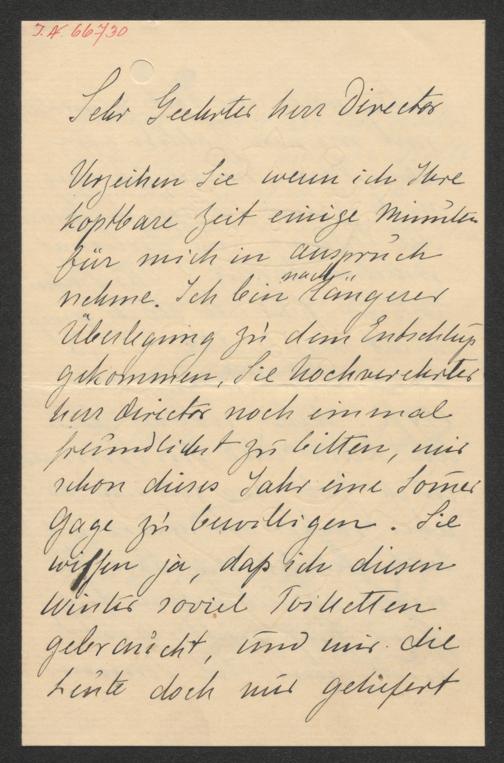 I.N. 66730
Sehr Geehrter herr Director
Verzeihen Sie wenn ich Ihre
kostbare Zeit einige Minuten
für mich in anspruch
nehme. Ich bin nach Längerer
Überlegung zu dem Entschluß
gekommen, Sie hochverehrter
herr Director noch einmal
freundlichst zu bitten, mir
schon dieses Jahr eine Som̅er
Gage zu bewilligen. Sie
wissen ja, daß ich diesen
Winter soviel Toiletten
gebraucht, und mir die
Leute doch nur geliefert